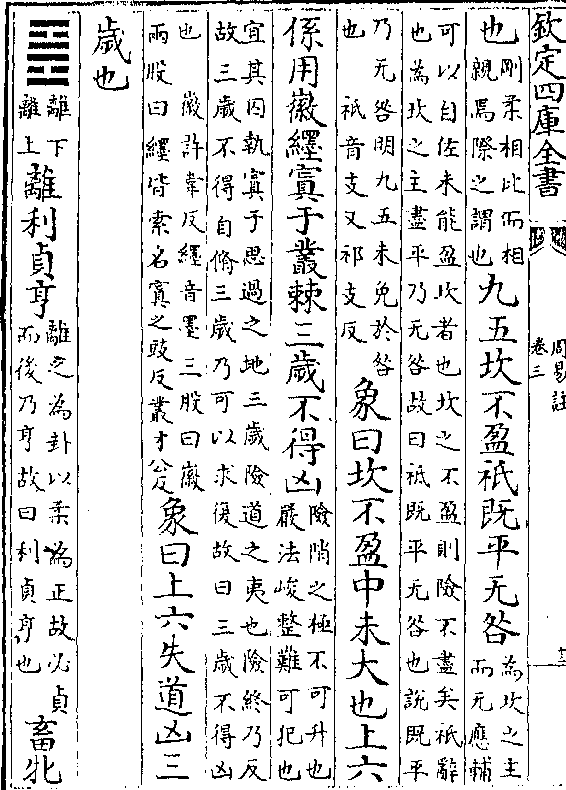 欽定四庫全書
周易註
卷三
十三
也剛柔相比而相親焉際之謂也九五坎不盈祗既平无咎為坎之主而无應輔
可以自佐未能盈坎者也坎之不盈則險不盡矣祗辭
也為坎之主盡平乃无咎故曰祗既平无咎也說既平
乃无咎明九五未免於咎也 祗音支又祁支反象曰坎不盈中未大也上六
係用徽纆寘于叢棘三歲不得凶險陗之極不可升也嚴法峻整難可犯也
宜其囚執寘于思過之地三歲險道之夷也險終乃反
故三歲不得自脩三歲乃可以求復故曰三歲不得凶
也 徽許韋反纆音墨三股曰徽兩股曰纆皆索名寘之豉反叢才公反象曰上六失道凶三
歲也
䷝離下離上離利貞亨離之為卦以柔為正故必貞而後乃亨故曰利貞亨也畜牝